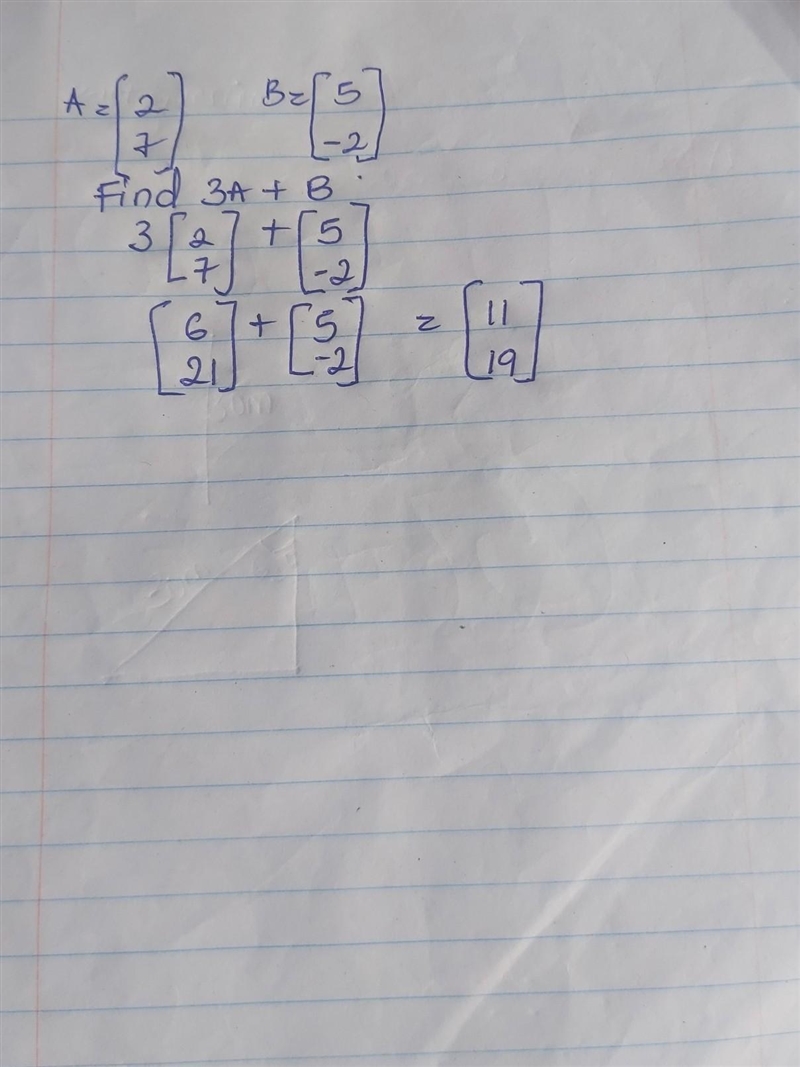 A = [2 7] B = [5 -2]
Find 3A + B
3 [2 7] + [5 -2]
[6 21] + [5 -2] = [11 19]